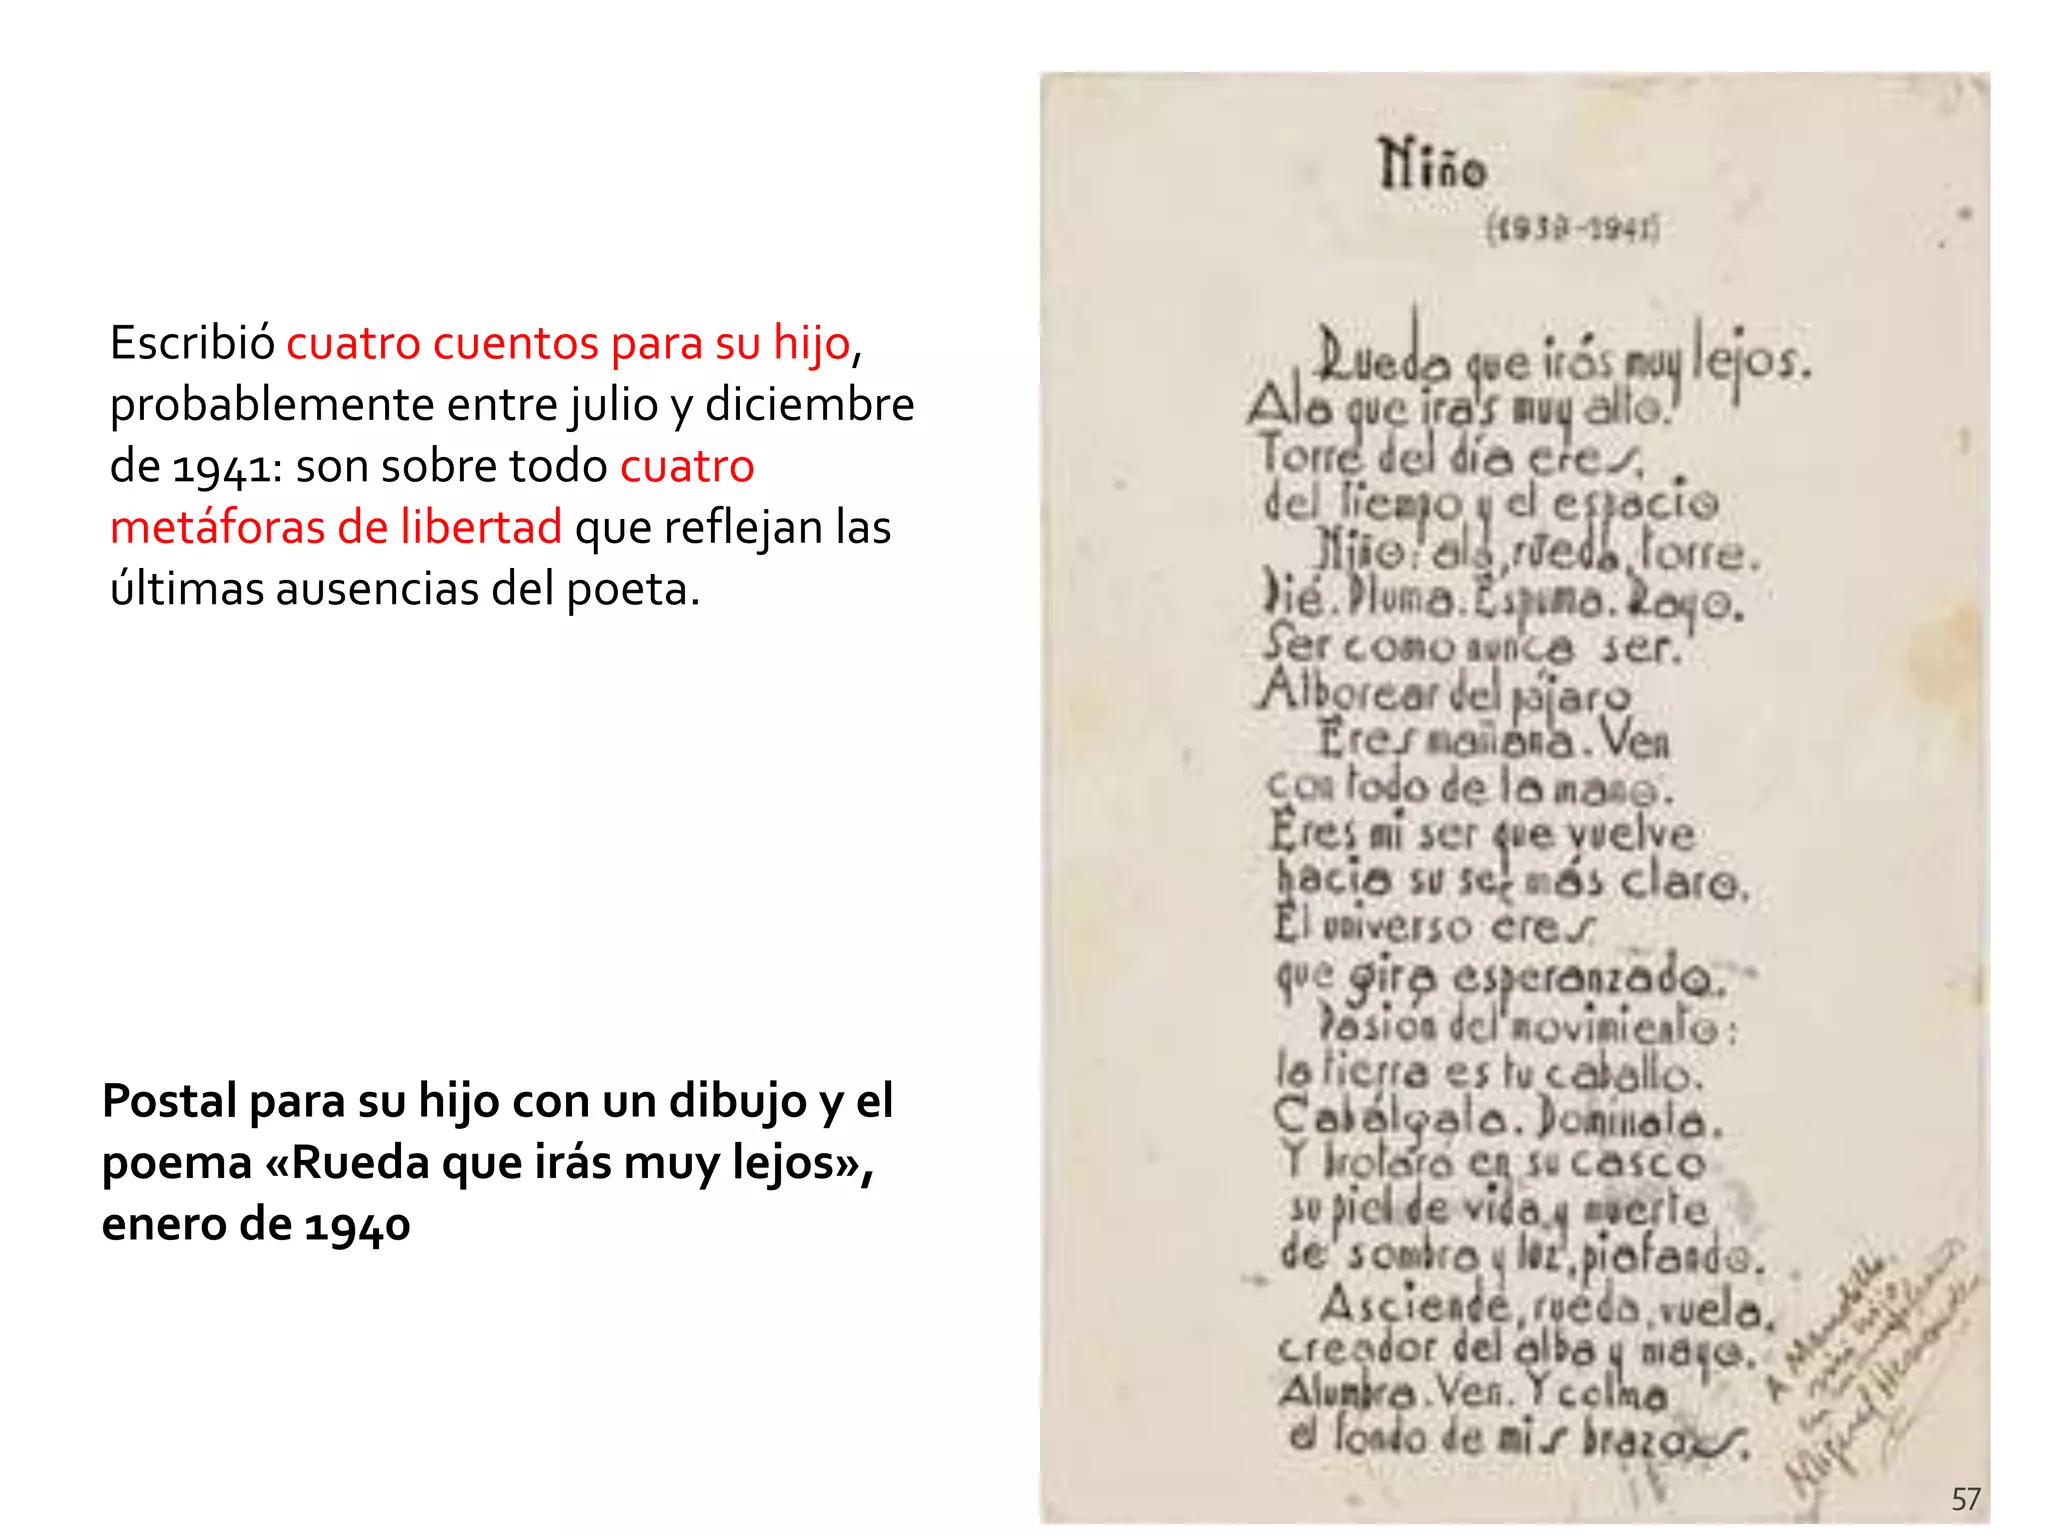 Escribió cuatro cuentos para su hijo,
probablemente entre julio y diciembre
de 1941: son sobre todo cuatro
metáforas de libertad que reflejan las
últimas ausencias del poeta.
Postal para su hijo con un dibujo y el
poema «Rueda que irás muy lejos»,
enero de 1940
Niño
(1939-1941)
Rueda que irás muy lejos.
Ala que irás muy alto.
Torre del día eres,
del tiempo y el espacio
Niño: ala, rueda, torre.
Pié. Pluma. Espuma. Rayo.
Ser como nunca ser.
Alborear del pájaro
Eres mañana. Ven
con todo de la mano.
Eres mi ser que vuelve
hacia su ser más claro.
El universo eres
que gira esperanzado.
Pasión del movimiento:
la tierra es tu caballo.
Cabálgala. Domínala.
Y brotará en su casco
su piel de vida y muerte
de sombra y luz, piafando.
Asciende, rueda, vuela,
creador del alba y mayo.
Alumbra. Ven. Y colma
el fondo de mis brazos.
A Manolillo,
mi hijo
en
Miguel Hernández
57